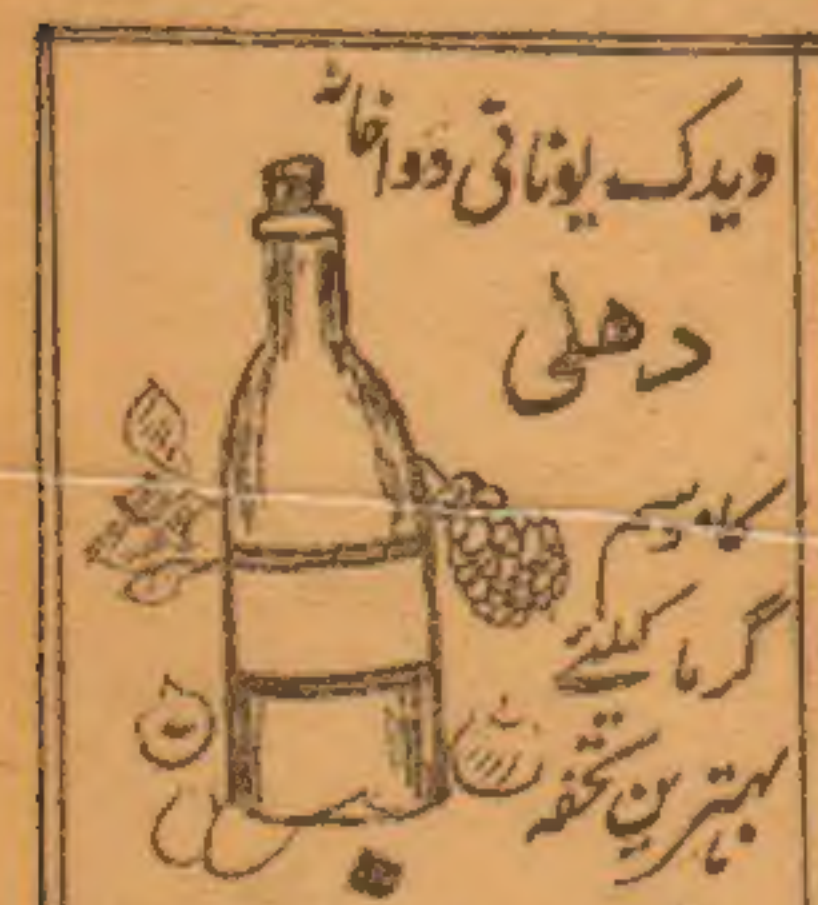 ویدک یونانی دواخانہ
دھلی
کا موسم
گرما کیلئے
بہترین تحفہ